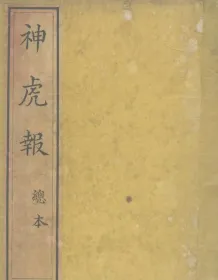 神虎報
總本